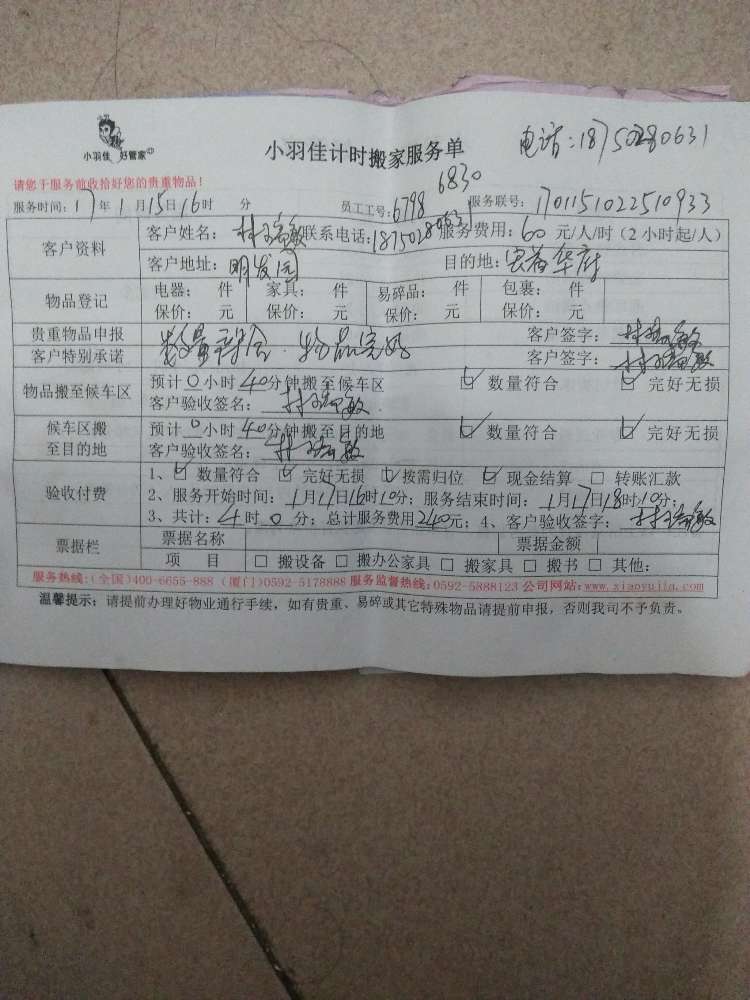 小羽佳 好管家
小羽佳计时搬家服务单
电话:18750280631
请您于服务前收拾好您的贵重物品！
6830
服务时间：17年1月15日16时 分 员工工号：6798 服务联号：170115102251 0933
客户资料 客户姓名： 联系电话：18750280631 服务费用：60元/人/时（2小时起/人）
客户地址：明发园 目的地： 华府
物品登记 电器： 件 家具： 件 易碎品： 件 包裹： 件
保价： 元 保价： 元 保价： 元 保价： 元
贵重物品申报 数量符合．物品完好 客户签字：
客户特别承诺 客户签字：
物品搬至候车区 预计0小时40分钟搬至候车区 ☑ 数量符合 ☑ 完好无损
客户验收签名：
候车区搬至目的地 预计0小时40分钟搬至目的地 ☑ 数量符合 ☑ 完好无损
客户验收签名：
验收付费 1、☑ 数量符合 ☑ 完好无损 ☑ 按需归位 ☑ 现金结算 □ 转账汇款
2、服务开始时间：1月17日16时10分；服务结束时间：1月17日18时10分；
3、共计：4时0分；总计服务费用240元；4、客户验收签字：
票据栏 票据名称 票据金额
项 目 □ 搬设备 □ 搬办公家具 □ 搬家具 □ 搬书 □ 其他：
服务热线：(全国)400-6655-888 (厦门)0592-5178888 服务监督热线：0592-5888123 公司网站：www.xiaoyujia.com
温馨提示：请提前办理好物业通行手续，如有贵重、易碎或其它特殊物品请提前申报，否则我司不予负责。